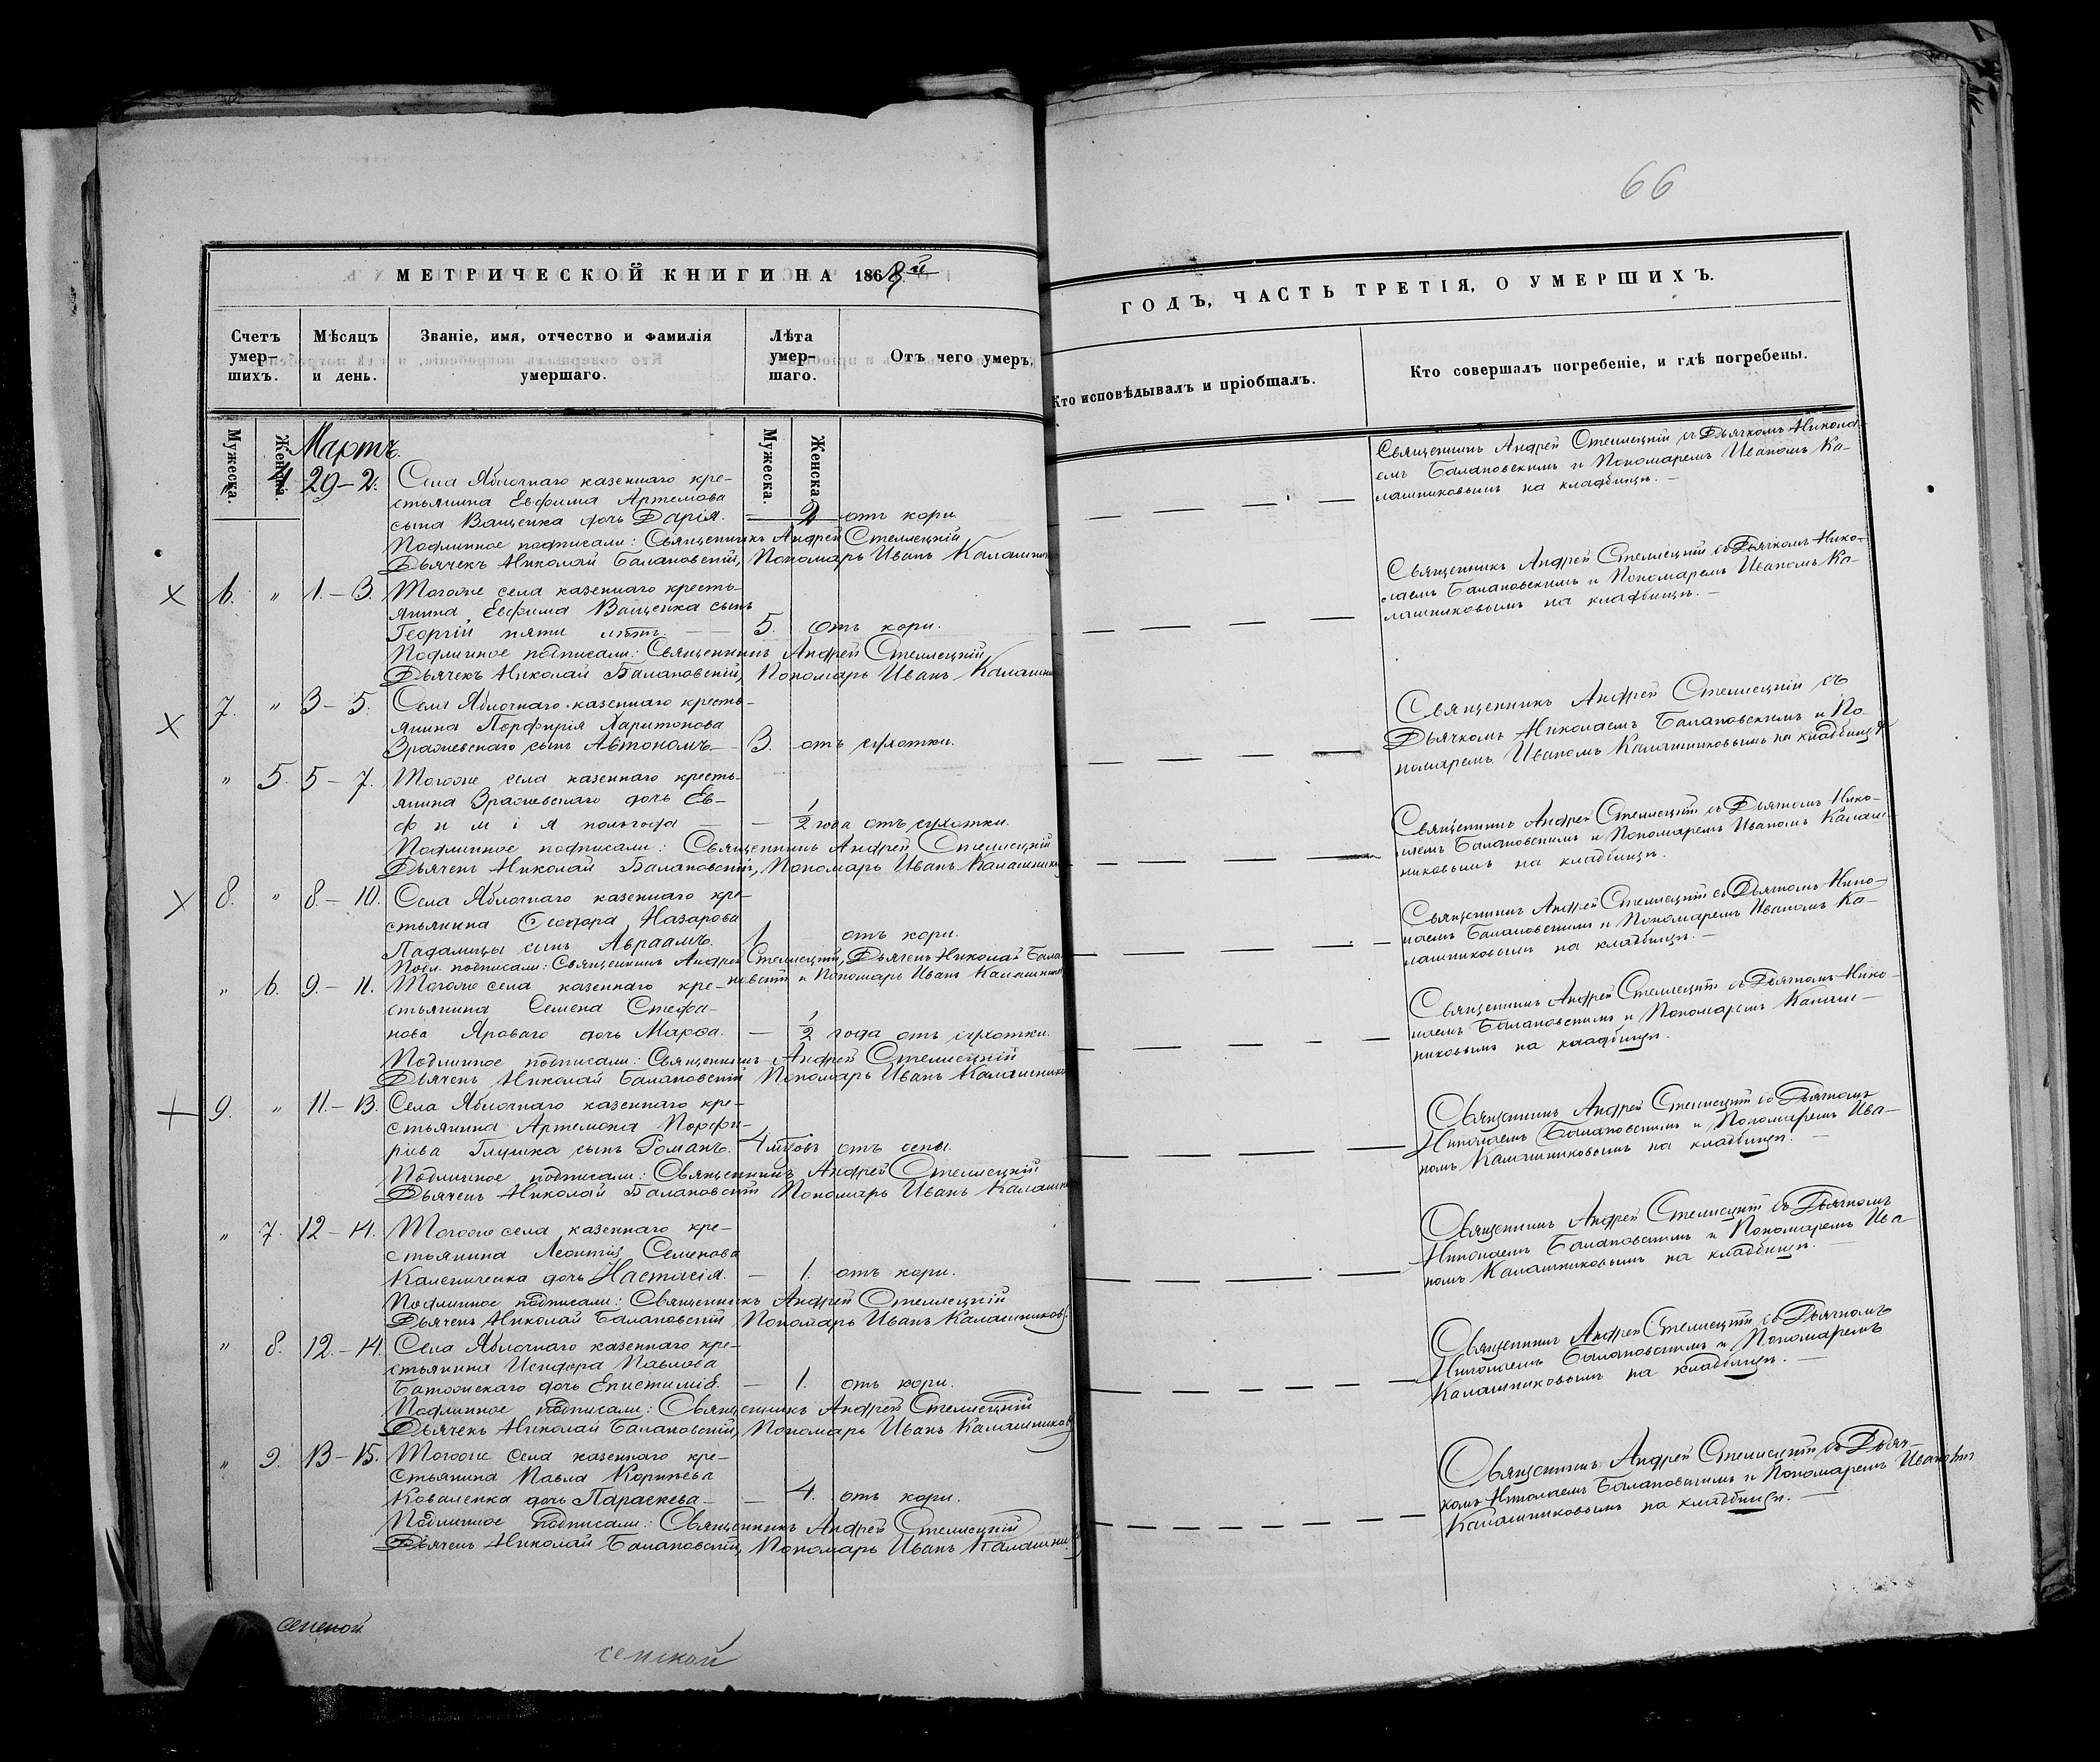 66
МЕТРИЧЕСКОЙ КНИГИ НА 1868й
ГОДЪ, ЧАСТЬ ТРЕТІЯ, О УМЕРШИХЪ.
Счетъ умер-шихъ.
Мѣсяцъ и день.
Званіе, имя, отчество и фамилія умершаго.
Лѣта умер-шаго.
Отъ чего умеръ.
Кто исповѣдывалъ и пріобщалъ.
Кто совершалъ погребеніе, и гдѣ погребены.
Мужеска. Женска.
Мужеска. Женска.
Мартъ.
" 4 29–2. Села Яблочнаго казеннаго кре-
стьянина Евфима Артемова
сына Ващенка дочь Дарія. — 2 отъ кори
Подлинное подписали: Священникъ Андрей Стеллецкій
Дьячекъ Николай Балановскій, Пономарь Иванъ
Священникъ Андрей Стеллецкій съ Дьячкомъ Никола
емъ Балановскимъ и Пономаремъ Иваномъ Ка-
лашниковымъ на кладбищѣ. —
6. " 1.–3. Тогоже села казеннаго кресть-
янина Евфима Ващенка сынъ
Георгій пяти лѣтъ. — 5. отъ кори.
Подлинное подписали: Священникъ Андрей Стеллецкій
Дьячекъ Николай Балановскій, Пономарь Иванъ
Священникъ Андрей Стеллецкій съ Дьячкомъ Нико-
лаемъ Балановскимъ и Пономаремъ Иваномъ Ка-
лашниковымъ на кладбищѣ. —
7. " 3–5. Села Яблочнаго казеннаго кресть-
янина Порфирія Харитонова
Зражевскаго сынъ Автономъ — 3. отъ сухотки.
Священникъ Андрей Стеллецкій съ
Дьячкомъ Николаемъ Балановскимъ и По-
номаремъ Иваномъ Калашниковымъ на кладбищѣ
" 5. 5–7. Тогоже села казеннаго кресть-
янина Зражевскаго дочь Ев-
фимія полгода — — 1/2 года отъ сухотки.
Подлинное подписали: Священникъ Андрей Стеллецкій
Дьячекъ Николай Балановскій, Пономарь Иванъ
Священникъ Андрей Стеллецкій съ Дьячкомъ Нико-
лаемъ Балановскимъ и Пономаремъ Иваномъ Калаш-
никовымъ на кладбищѣ.
8. " 8.–10. Села Яблочнаго казеннаго кре-
стьянина Ѳеодора Назарова
Падалицы сынъ Авраамъ. 1 отъ кори.
Подл. подписали: Священникъ Андрей Стеллецкій, Дьячекъ Николай Бала-
новскій и Пономарь Иванъ
Священникъ Андрей Стеллецкій съ Дьячкомъ Нико-
лаемъ Балановскимъ и Пономаремъ Иваномъ Ка-
лашниковымъ на кладбищѣ. —
" 6. 9.–11. Тогоже села казеннаго кре-
стьянина Семена Стефа-
нова Яроваго дочь Марѳа. — 1/2 года отъ сухотки.
Подлинное подписали: Священникъ Андрей Стеллецкій
Дьячекъ Николай Балановскій Пономарь Иванъ
Священникъ Андрей Стеллецкій съ Дьячкомъ Нико-
лаемъ Балановскимъ и Пономаремъ Калаш-
никовымъ на кладбищѣ.
9. " 11.–13. Села Яблочнаго казеннаго кре-
стьянина Артемона Порфи-
ріева Глушка сынъ Романъ. 4 отъ оспы.
Подлинное подписали: Священникъ Андрей Стеллецкій
Дьячекъ Николай Балановскій Пономарь Иванъ
Священникъ Андрей Стеллецкій съ Дьячкомъ
Николаемъ Балановскимъ и Пономаремъ Ива-
номъ Калашниковымъ на кладбищѣ. —
" 7. 12–14. Тогоже села казеннаго кре-
стьянина Леонтія Семенова
Калениченка дочь Настасія. — 1. отъ кори.
Подлинное подписали: Священникъ Андрей Стеллецкій
Дьячекъ Николай Балановскій Пономарь Иванъ Калашниковъ.
Священникъ Андрей Стеллецкій съ Дьячкомъ
Николаемъ Балановскимъ и Пономаремъ Ива
номъ Калашниковымъ на кладбищѣ. —
" 8. 12.–14. Села Яблочнаго казеннаго кре-
стьянина Исидора Павлова
дочь Епистимія. — 1. отъ кори.
Подлинное подписали: Священникъ Андрей Стеллецкій
Дьячекъ Николай Балановскій, Пономарь Иванъ Калашниковъ
Священникъ Андрей Стеллецкій съ Дьячкомъ
Николаемъ Балановскимъ и Пономаремъ
Калашниковымъ на кладбищѣ. —
" 9. 13–15. Тогоже Села казеннаго кре-
стьянина Павла Корнѣева
Коваленка дочь Параскева — — 4. отъ кори.
Подлинное подписали: Священникъ Андрей Стеллецкій
Дьячекъ Николай Балановскій, Пономарь Иванъ
Священникъ Андрей Стеллецкій съ Дьяч-
комъ Николаемъ Балановскимъ и Пономаремъ
Калашниковымъ на кладбищѣ. —